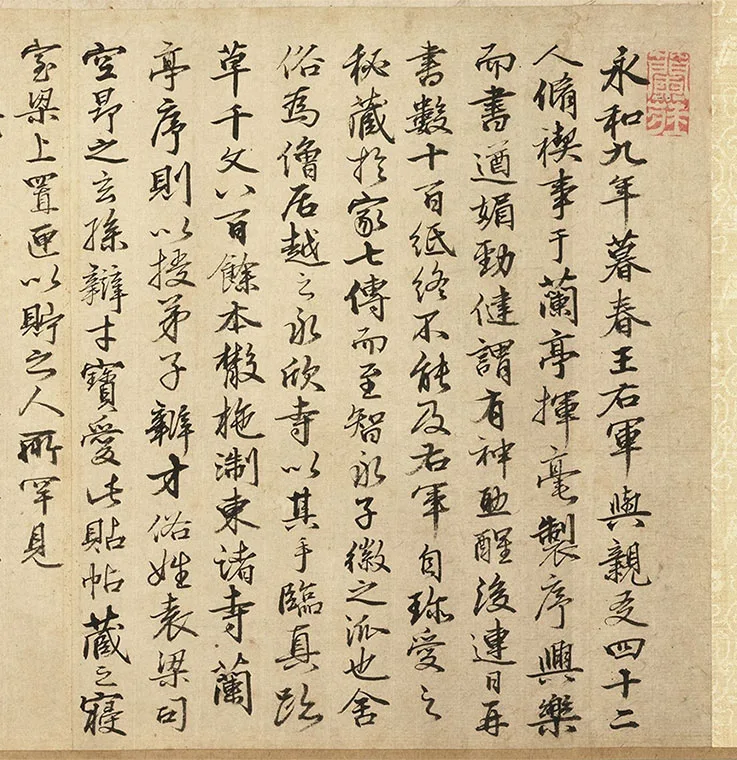 永和九年暮春王右軍與親友四十二
人脩禊事于蘭亭揮毫製序興樂
而書遒媚勁健謂有神助醒後連日再
書數十百紙終不能及右軍自珍愛之
秘藏於家七傳而至智永子徽之派也舍
俗為僧居越之永欣寺以其手臨真
草千文八百餘本散施淛東諸寺蘭
亭序則以授弟子辯才俗姓袁梁司
空昂之玄孫辯才寶愛此帖藏之寢
室梁上置匣以貯之人所罕見